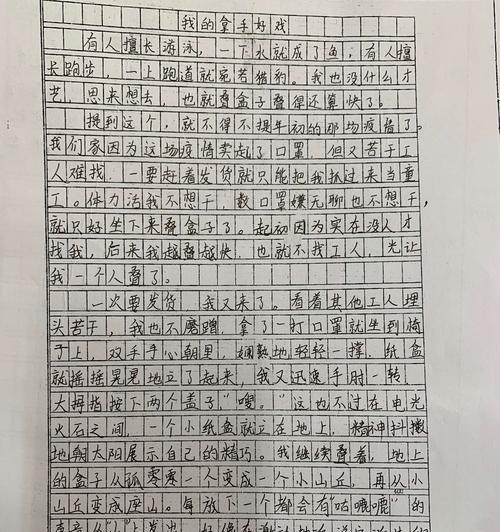 我的拿手好戏
有人擅长游泳,一下水就成了鱼;有人擅
长跑步,一上跑道就宛若猎豹。我也没什么才
艺,思来想去,也就叠盒子叠得还算快了。
提到这个,就不得不提年初的那场疫情了。
我们家因为这场疫情卖起了口罩,但又苦于工
人难找,一要赶着发货就只能把我抓过来当童
工。体力活我不想干,数口罩嫌无聊也不想干,
就只好坐下来叠盒子了。起初因为实在没人才
找我,后来我越叠越快,也就不找工人,光让
我一个人叠了。
一次要发货,我又来了。看着其他工人埋
头苦干,我也不磨蹭,拿了一打口罩就坐到椅
子上,双手手心朝里,娴熟地轻轻一撑,纸盒
就摇摇晃晃地立了起来,我又迅速手肘一转,
大拇指按下两个盖子,“嗖。”这也不过在电光
火石之间,一个小纸盒就立在地上,精神抖擞
地朝大阳展示自己的精巧。我继续叠着,地上
的盒子从孤零零一个变成一个小山丘,再从小
山丘变成座山。每放下一个都会有“咕嘟嘟”的